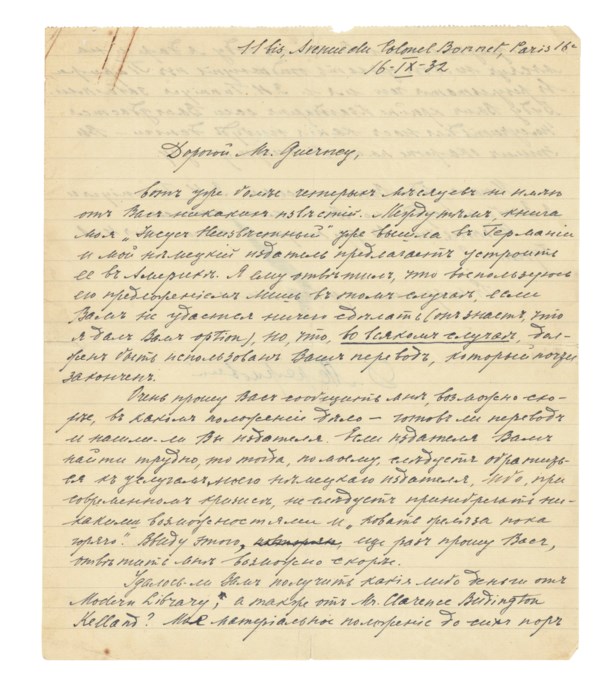 11 bis, Avenue du Colonel Bonnet, Paris 16e
16-IX-32
Дорогой Mr. Guerney,
вотъ уже болѣе четырехъ мѣсяцевъ не имѣю
отъ Васъ никакихъ извѣстій. Между тѣмъ, книга
моя „Іисусъ Неизвѣстный" уже вышла въ Германіи
и мой нѣмецкій издатель предлагаетъ устроить
ее въ Америкѣ. Я ему отвѣтилъ, что воспользуюсь
его предложеніемъ лишь въ томъ случаѣ, если
Вамъ не удастся ничего сдѣлать (онъ знаетъ, что
я далъ Вамъ option), но, что, во всякомъ случаѣ, дол-
женъ быть использованъ Вашъ переводъ, который почти
законченъ.
Очень прошу Васъ сообщить мнѣ, возможно ско-
рѣе, въ какомъ положеніи дѣло — готовъ ли переводъ
и нашли ли Вы издателя. Если издателя Вамъ
найти трудно, то тогда, по моему, слѣдуетъ обратить-
ся къ услугамъ моего нѣмецкаго издателя, ибо, при
современномъ кризисѣ, не слѣдуетъ пренебрегать ни-
какими возможностями и „ковать желѣзо пока
горячо". Ввиду этого, еще разъ прошу Васъ,
отвѣтить мнѣ возможно скорѣе.
Удалось ли Вамъ получить какія либо деньги отъ
Modern Library, а также отъ Mr. Clarence Budington
Kelland? Мое матеріальное положеніе до сихъ поръ